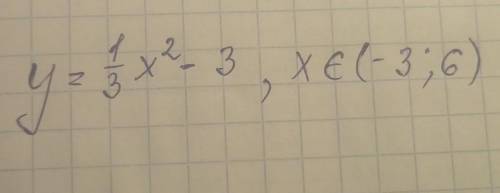 y = 1/3 x² - 3 , x ∈ (-3; 6)